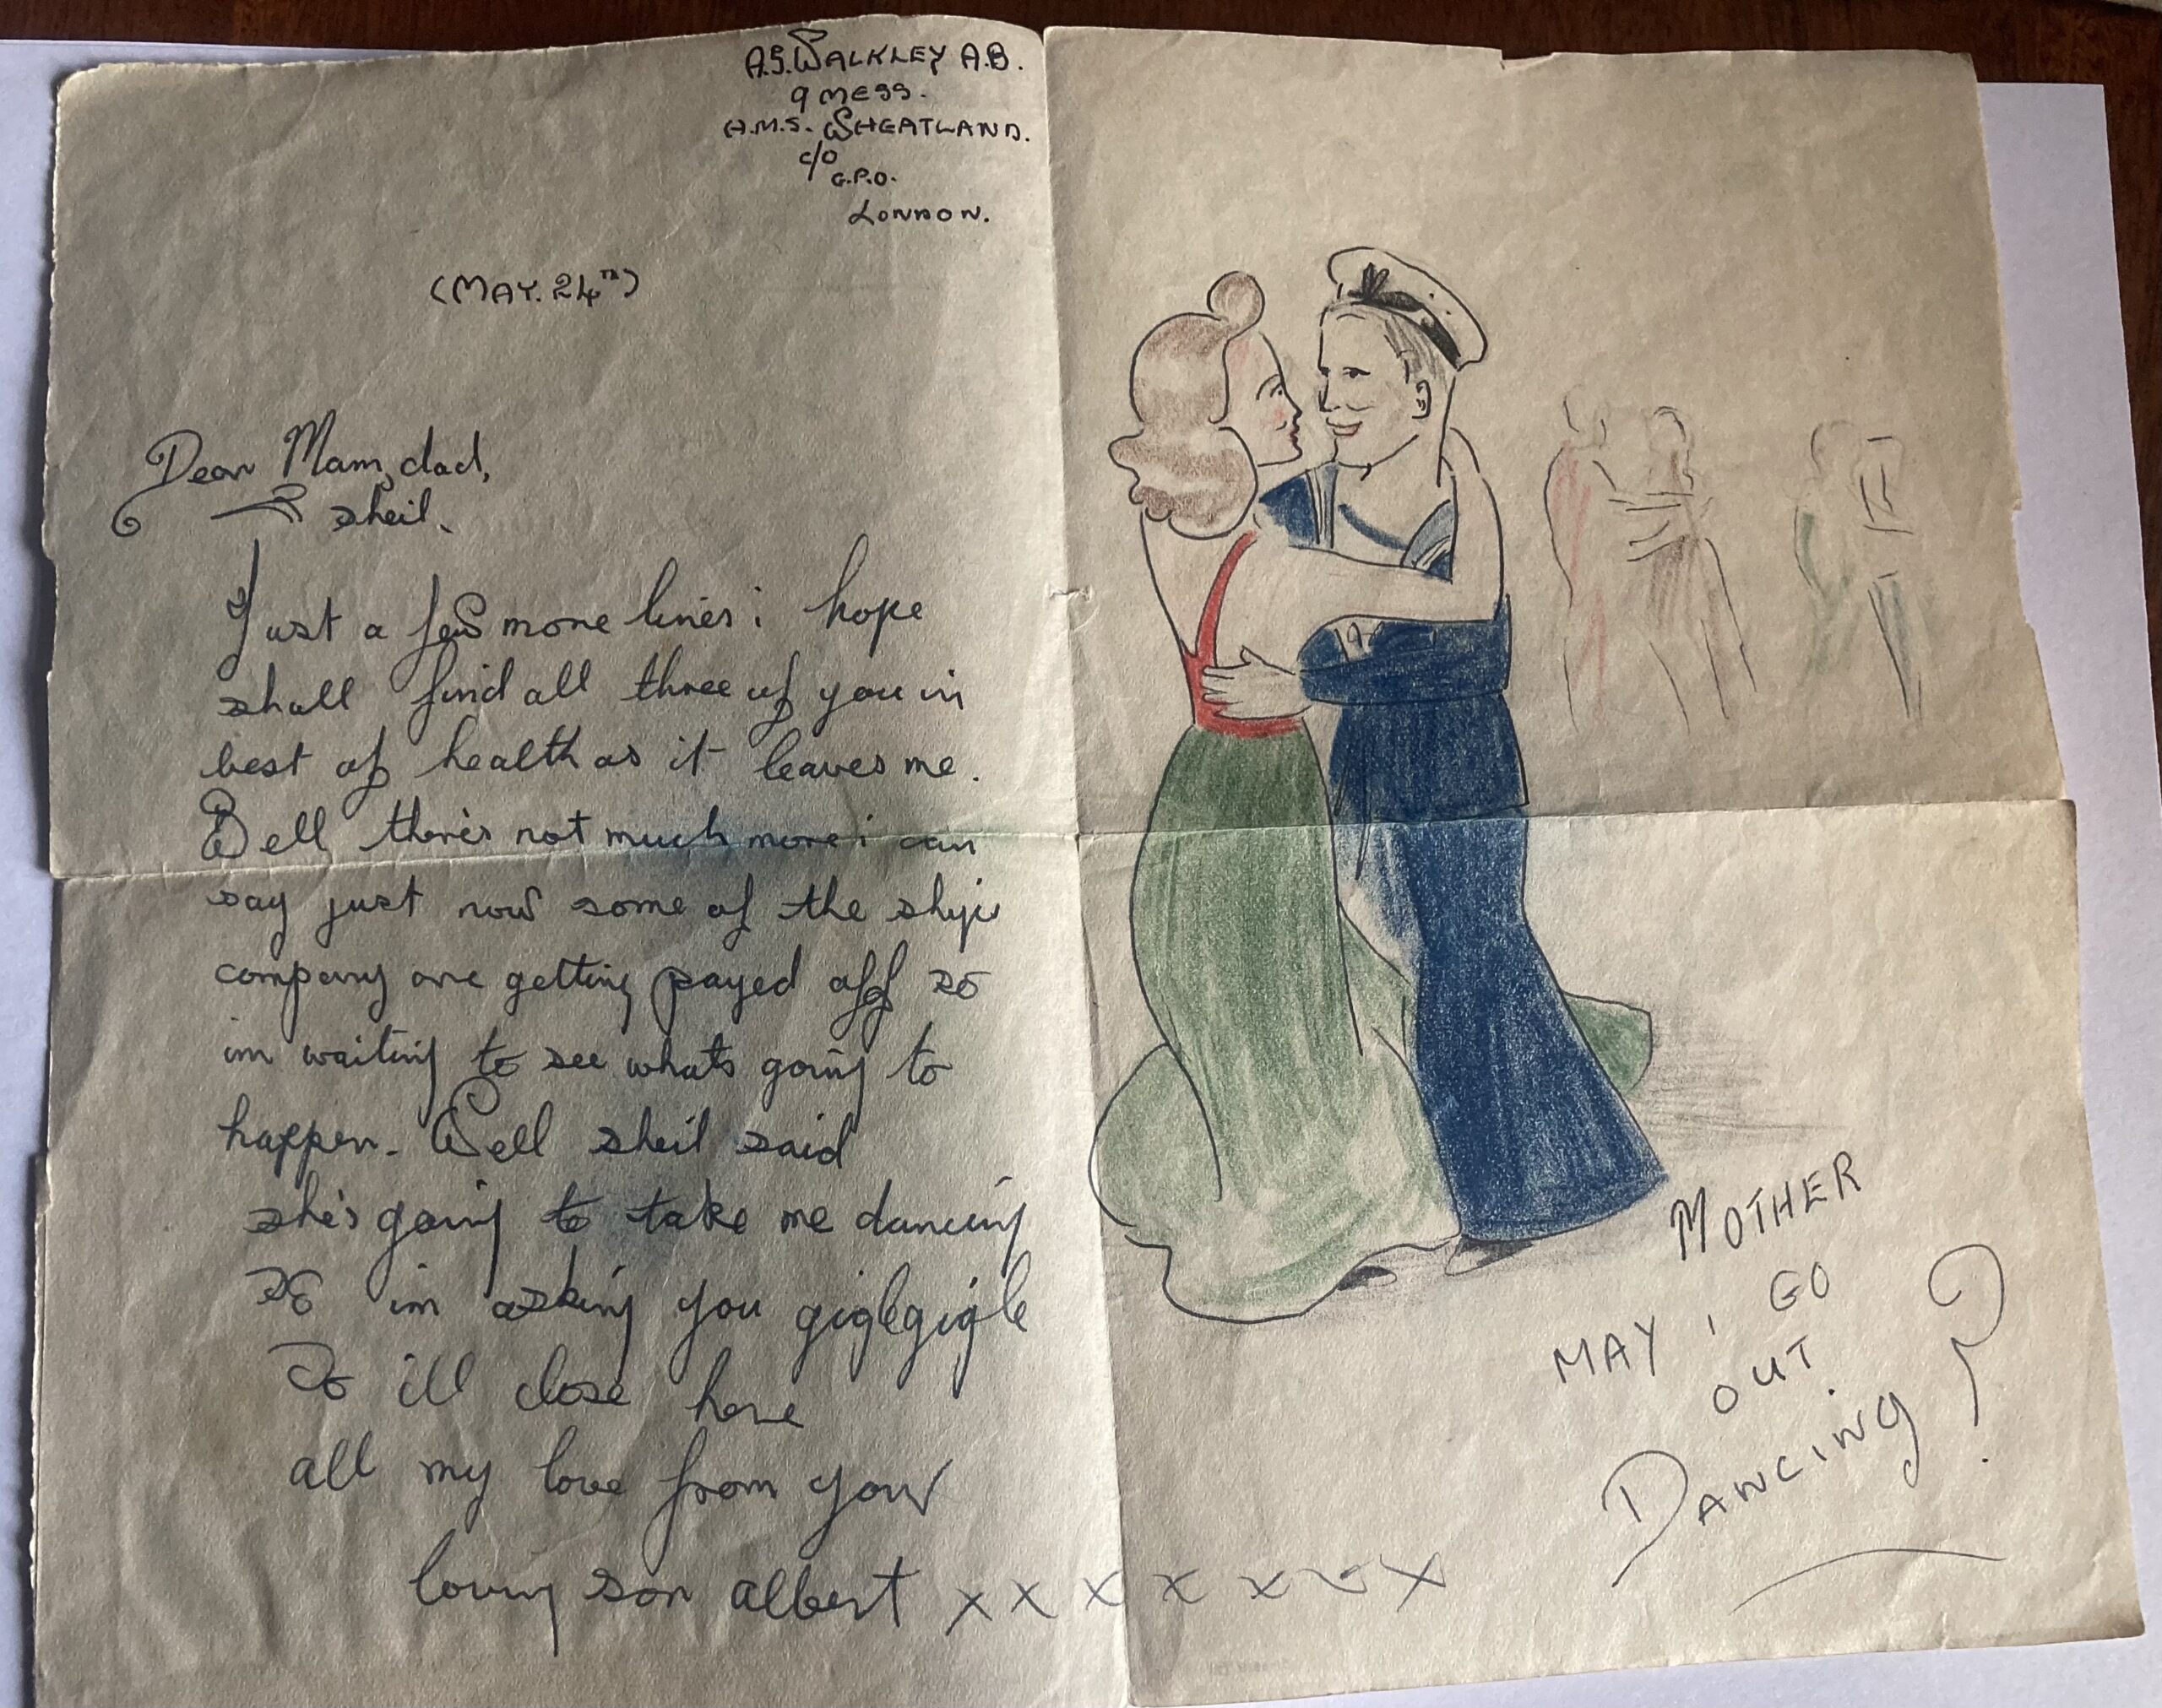 A.S. WALKLEY A.B.
9 MESS.
H.M.S. WHEATLAND.
c/o
G.P.O.
LONDON.
(MAY. 24TH)
Dear Mam, dad,
& sheil.
Just a few more lines i hope
shall find all three of you in
best of health as it leaves me.
Well there's not much more i can
say just now some of the ships
company are getting payed off so
im waiting to see whats going to
happen. Well sheil said
she's going to take me dancing
So im asking you giglegigle
So ill close here
all my love from your
loving son albert x x x x x x x
MOTHER
MAY I GO
OUT
DANCING?